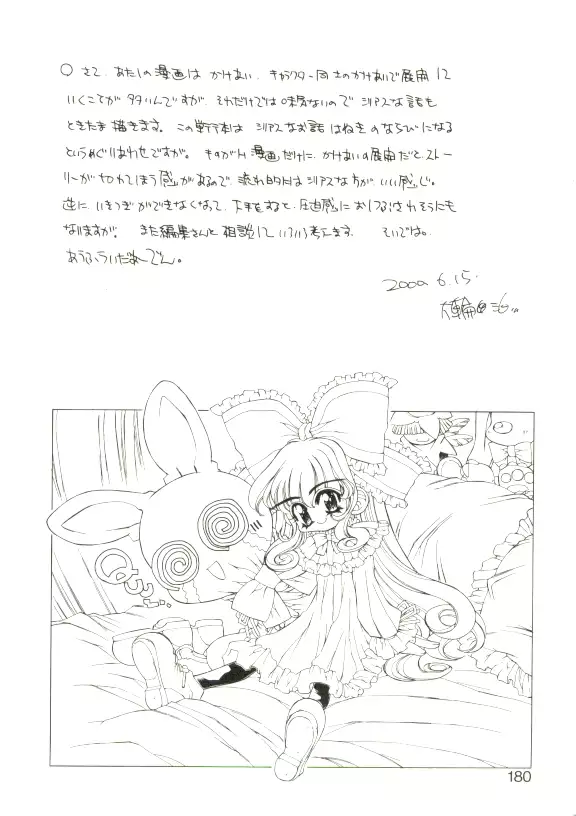 ○ さて、あたしの漫画は かけあい、キャラクター同士のかけあいで展開して
いくことが多いんですが、それだけでは味気ないので シリアスな話も
ときたま描きます。この単行本は シリアスなお話 はぬき のならびになる
というめぐりあわせですが。 漫画だけに、かけあいの展開だと、ストー
リーが切れてしまう感があるので、流れ的にはシリアスな方が、いい感じ。
逆に、いきつぎができなくなって、下手をすると、圧迫感におしつぶされそうにも
なりますが。 また編集さんと相談して いろいろ考えます。 それでは。
2000.6.15.
180